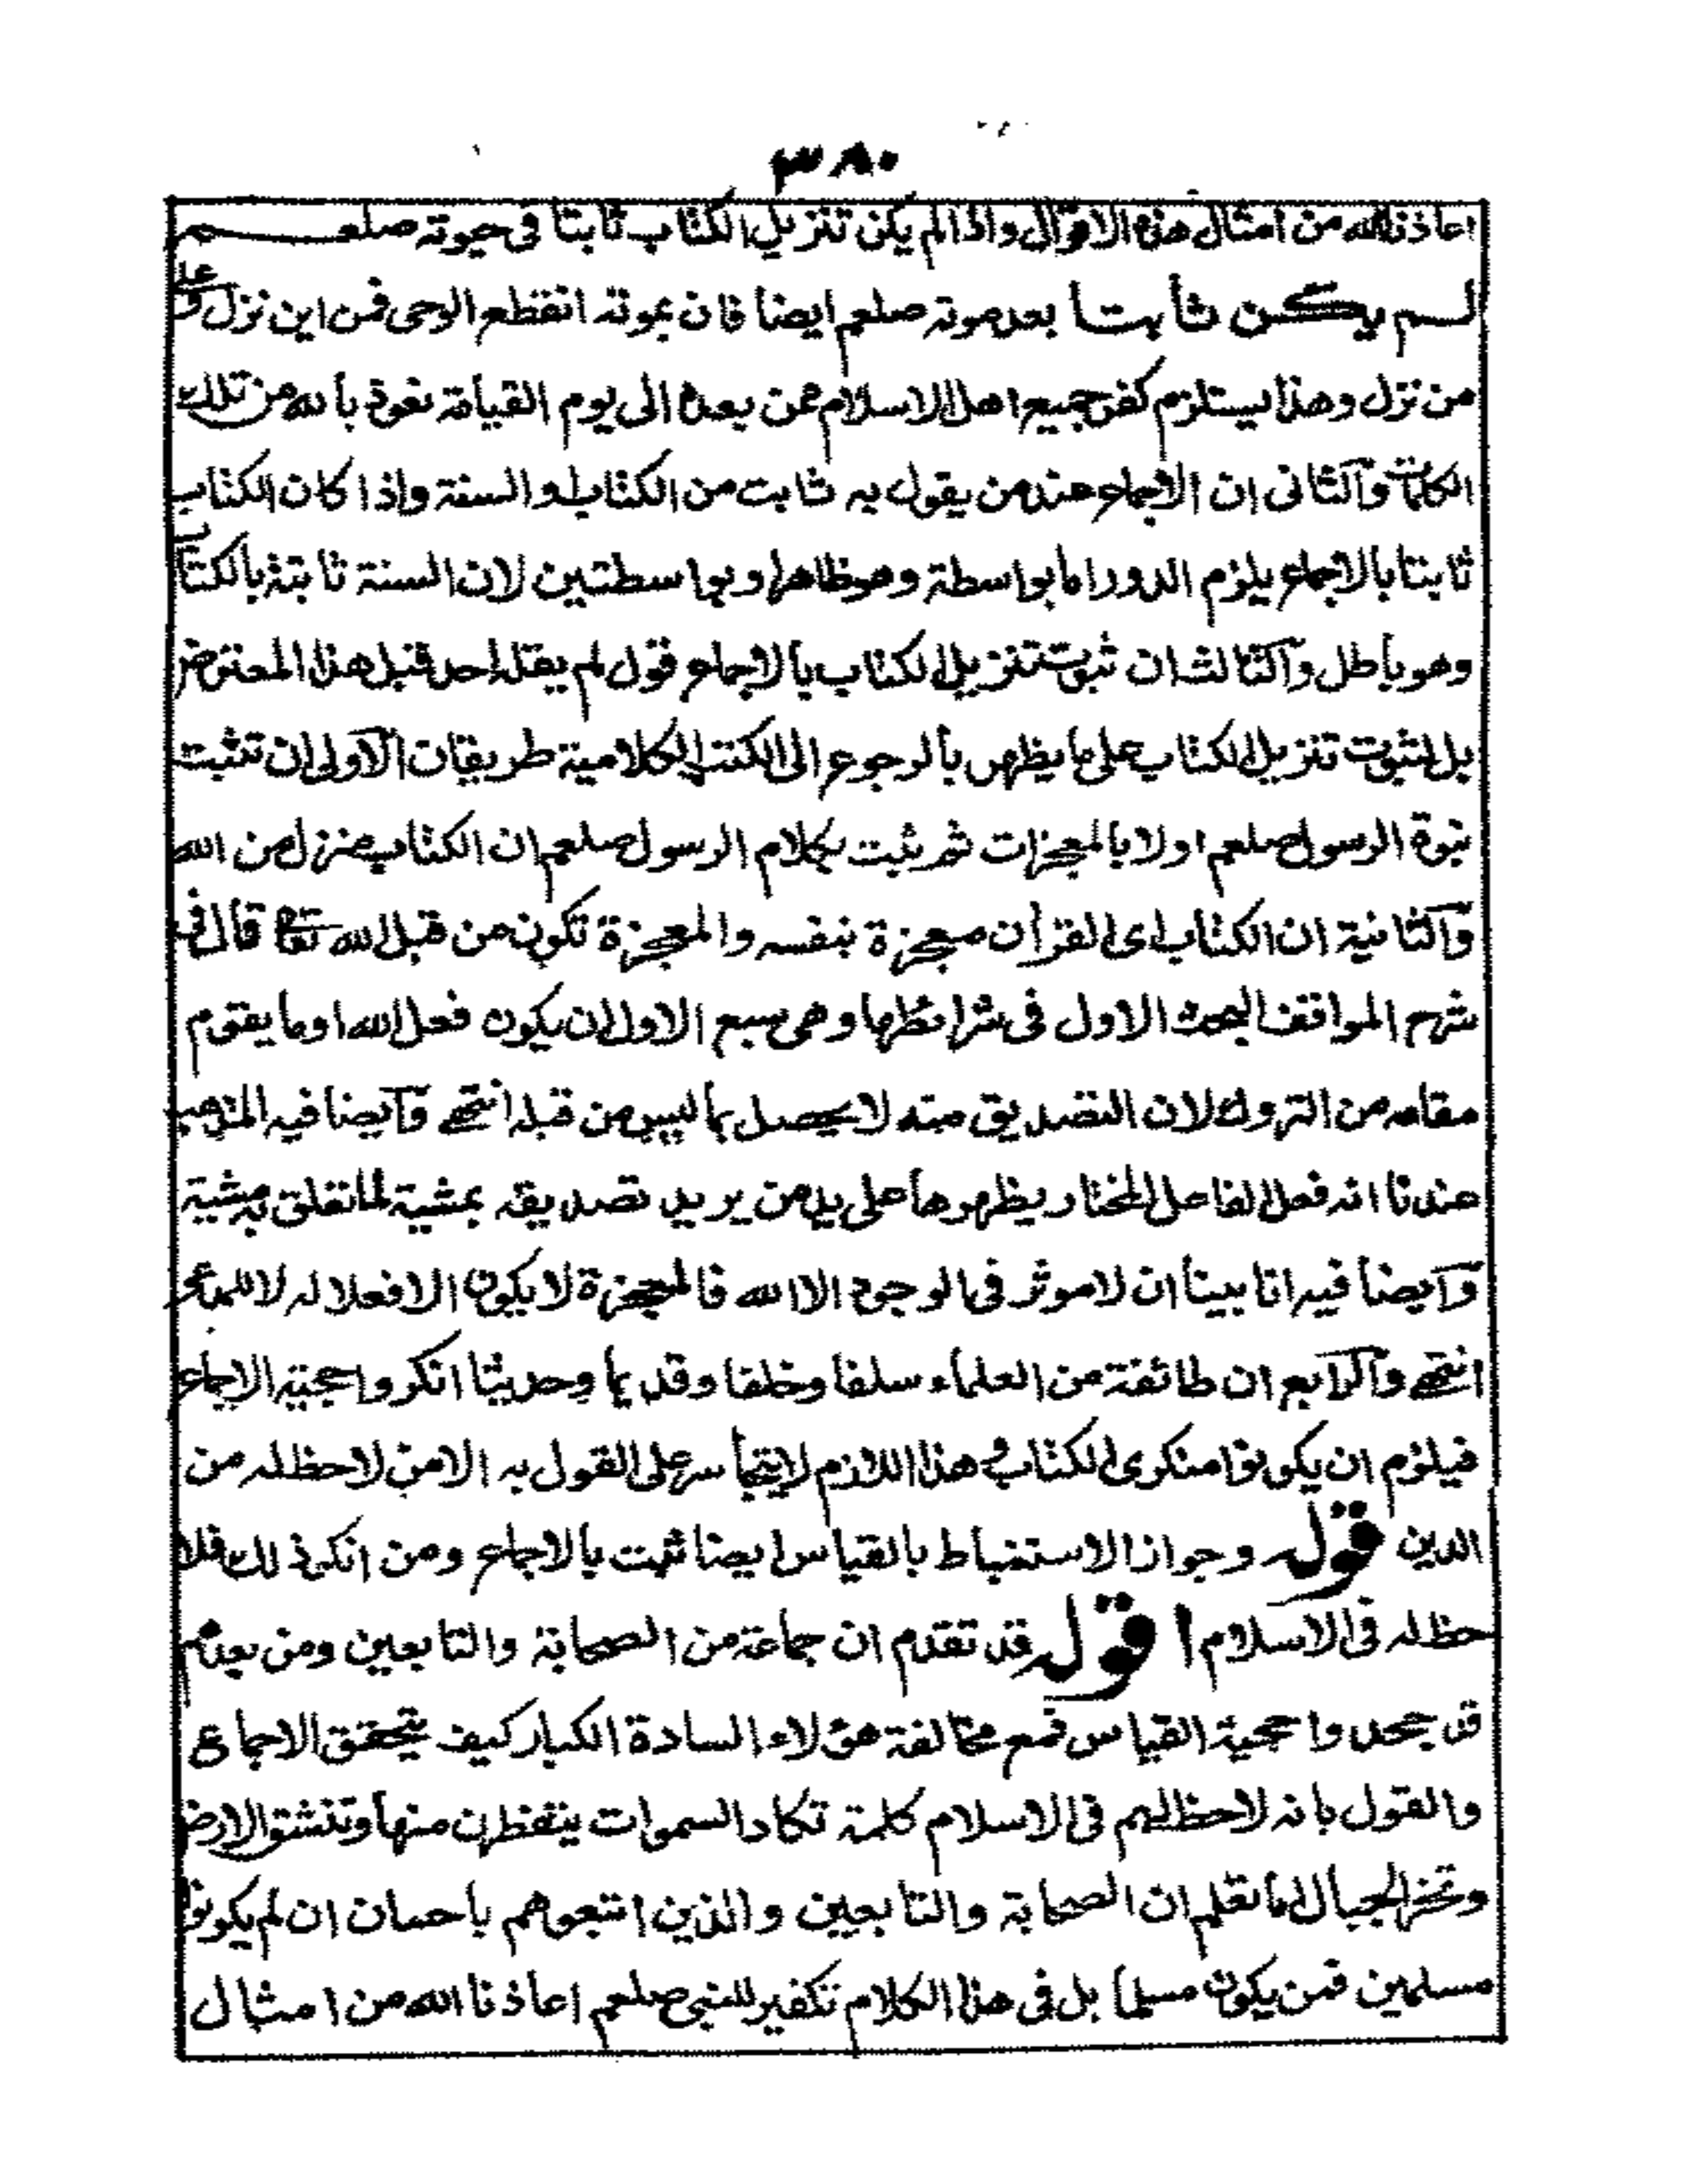 ٣٨٠
اعاذنا الله من امثال هذه الاقوال واذا لم يكن تنزيل الكتاب ثابتا فى حيوته صلعم
لم يكن ثابتا بعد موته صلعم ايضا فان بموته انقطع الوحى فمن اين نزل وعلى
من نزل وهذا يستلزم كفر جميع اهل الاسلام ممن بعده الى يوم القيامة نعوذ بالله من تلك
الكلمات والثانى ان الاجماع عند من يقول به ثابت من الكتاب والسنة واذا كان الكتاب
ثابتا بالاجماع يلزم الدور اما بواسطة وهو ظاهر او بواسطتين لان السنة ثابتة بالكتاب
وهو باطل والثالث ان ثبوت تنزيل الكتاب بالاجماع قول لم يقله احد قبل هذا المعترض
بل لثبوت تنزيل الكتاب على ما يظهر بالرجوع الى الكتب الكلامية طريقان الاولى ان تثبت
نبوة الرسول صلعم اولا بالمعجزات ثم يثبت بكلام الرسول صلعم ان الكتاب منزل من الله
والثانية ان الكتاب اى القرآن معجزة بنفسه والمعجزة تكون من قبل الله تعالى قال فى
شرح المواقف البحث الاول فى شرائطها وهى سبع الاول ان يكون فعل الله او ما يقوم
مقامه من التروك لان التصديق منه لا يحصل بما ليس من قبله انتهى وايضا فيه المذهب
عندنا انه فعل الفاعل المختار يظهرها على يد من يريد تصديقه بمشية لما تعلق به مشية
وايضا فيه انا بينا ان لا موثر فى الوجود الا الله فالمعجزة لا يكون الا فعلا له لا للمدعى
انتهى والرابع ان طائفة من العلماء سلفا وخلفا وقديما وحديثا انكروا حجية الاجماع
فيلزم ان يكونوا منكرى الكتاب و هذا اللازم لا يتجاسر على القول به الا من لا حظ له من
الدين قوله وجواز الاستنباط بالقياس ايضا ثبت بالاجماع ومن انكر ذلك فلا
حظ له فى الاسلام اقول قد تقدم ان جماعة من الصحابة والتابعين ومن بعدهم
قد جحدوا حجية القياس فمع مخالفة هؤلاء السادة الكبار كيف يتحقق الاجماع
والقول بانه لا حظ لهم فى الاسلام كلمة تكاد السموات يتفطرن منها وتنشق الارض
وتخر الجبال اما تعلم ان الصحابة والتابعين والذين اتبعوهم باحسان ان لم يكونوا
مسلمين فمن يكون مسلما بل فى هذا الكلام تكفير للنبى صلعم اعاذنا الله من امثال